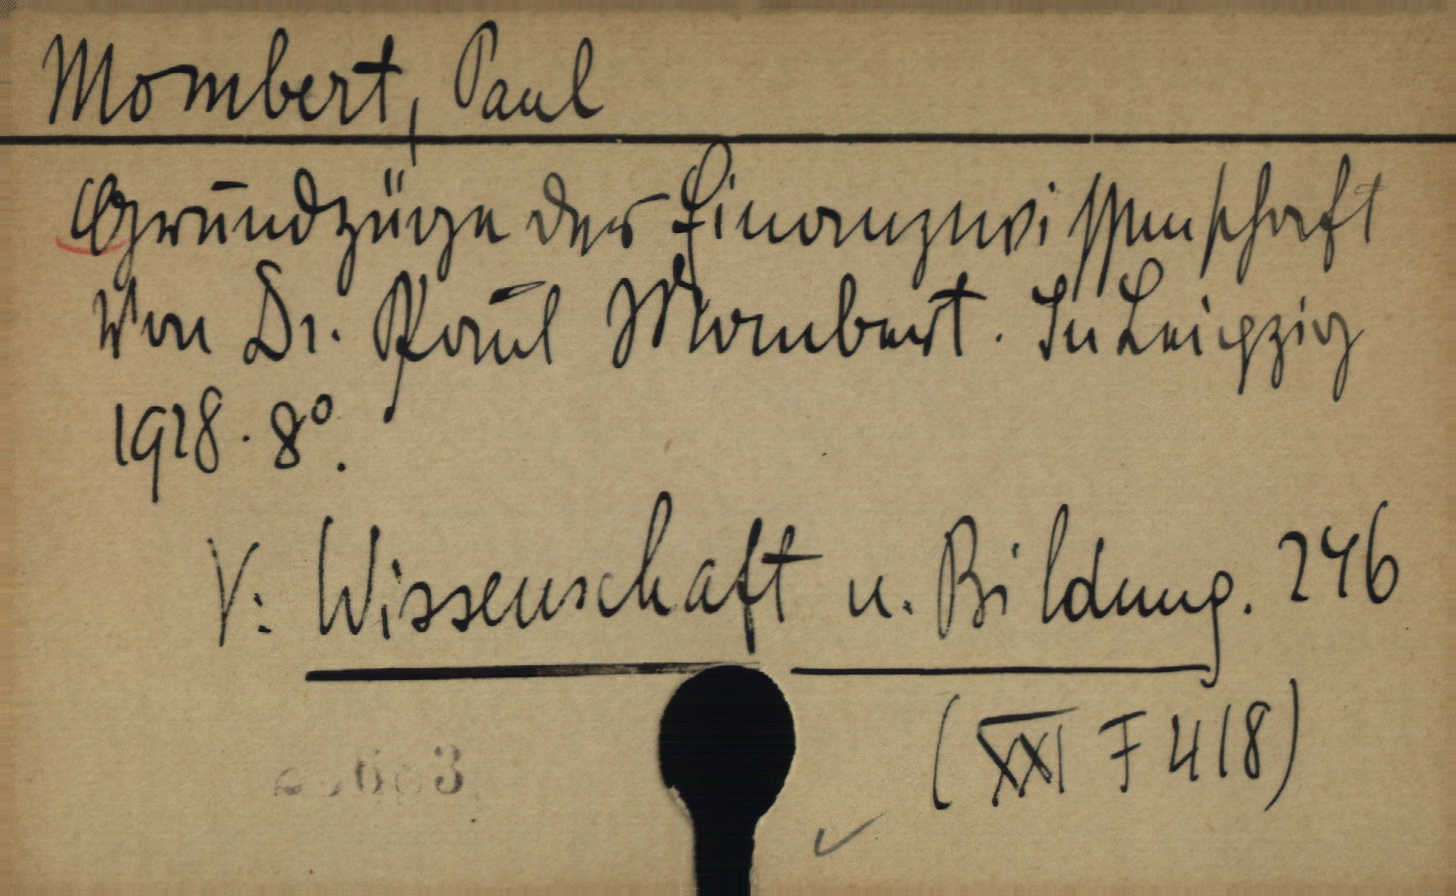 Mombert, Paul
Grundzüge der Finanzwissenschaft
Von Dr. Paul Mombert. In Leipzig
1928. 8°.
V: Wissenschaft u. Bildung. 246
(XXI F 418)